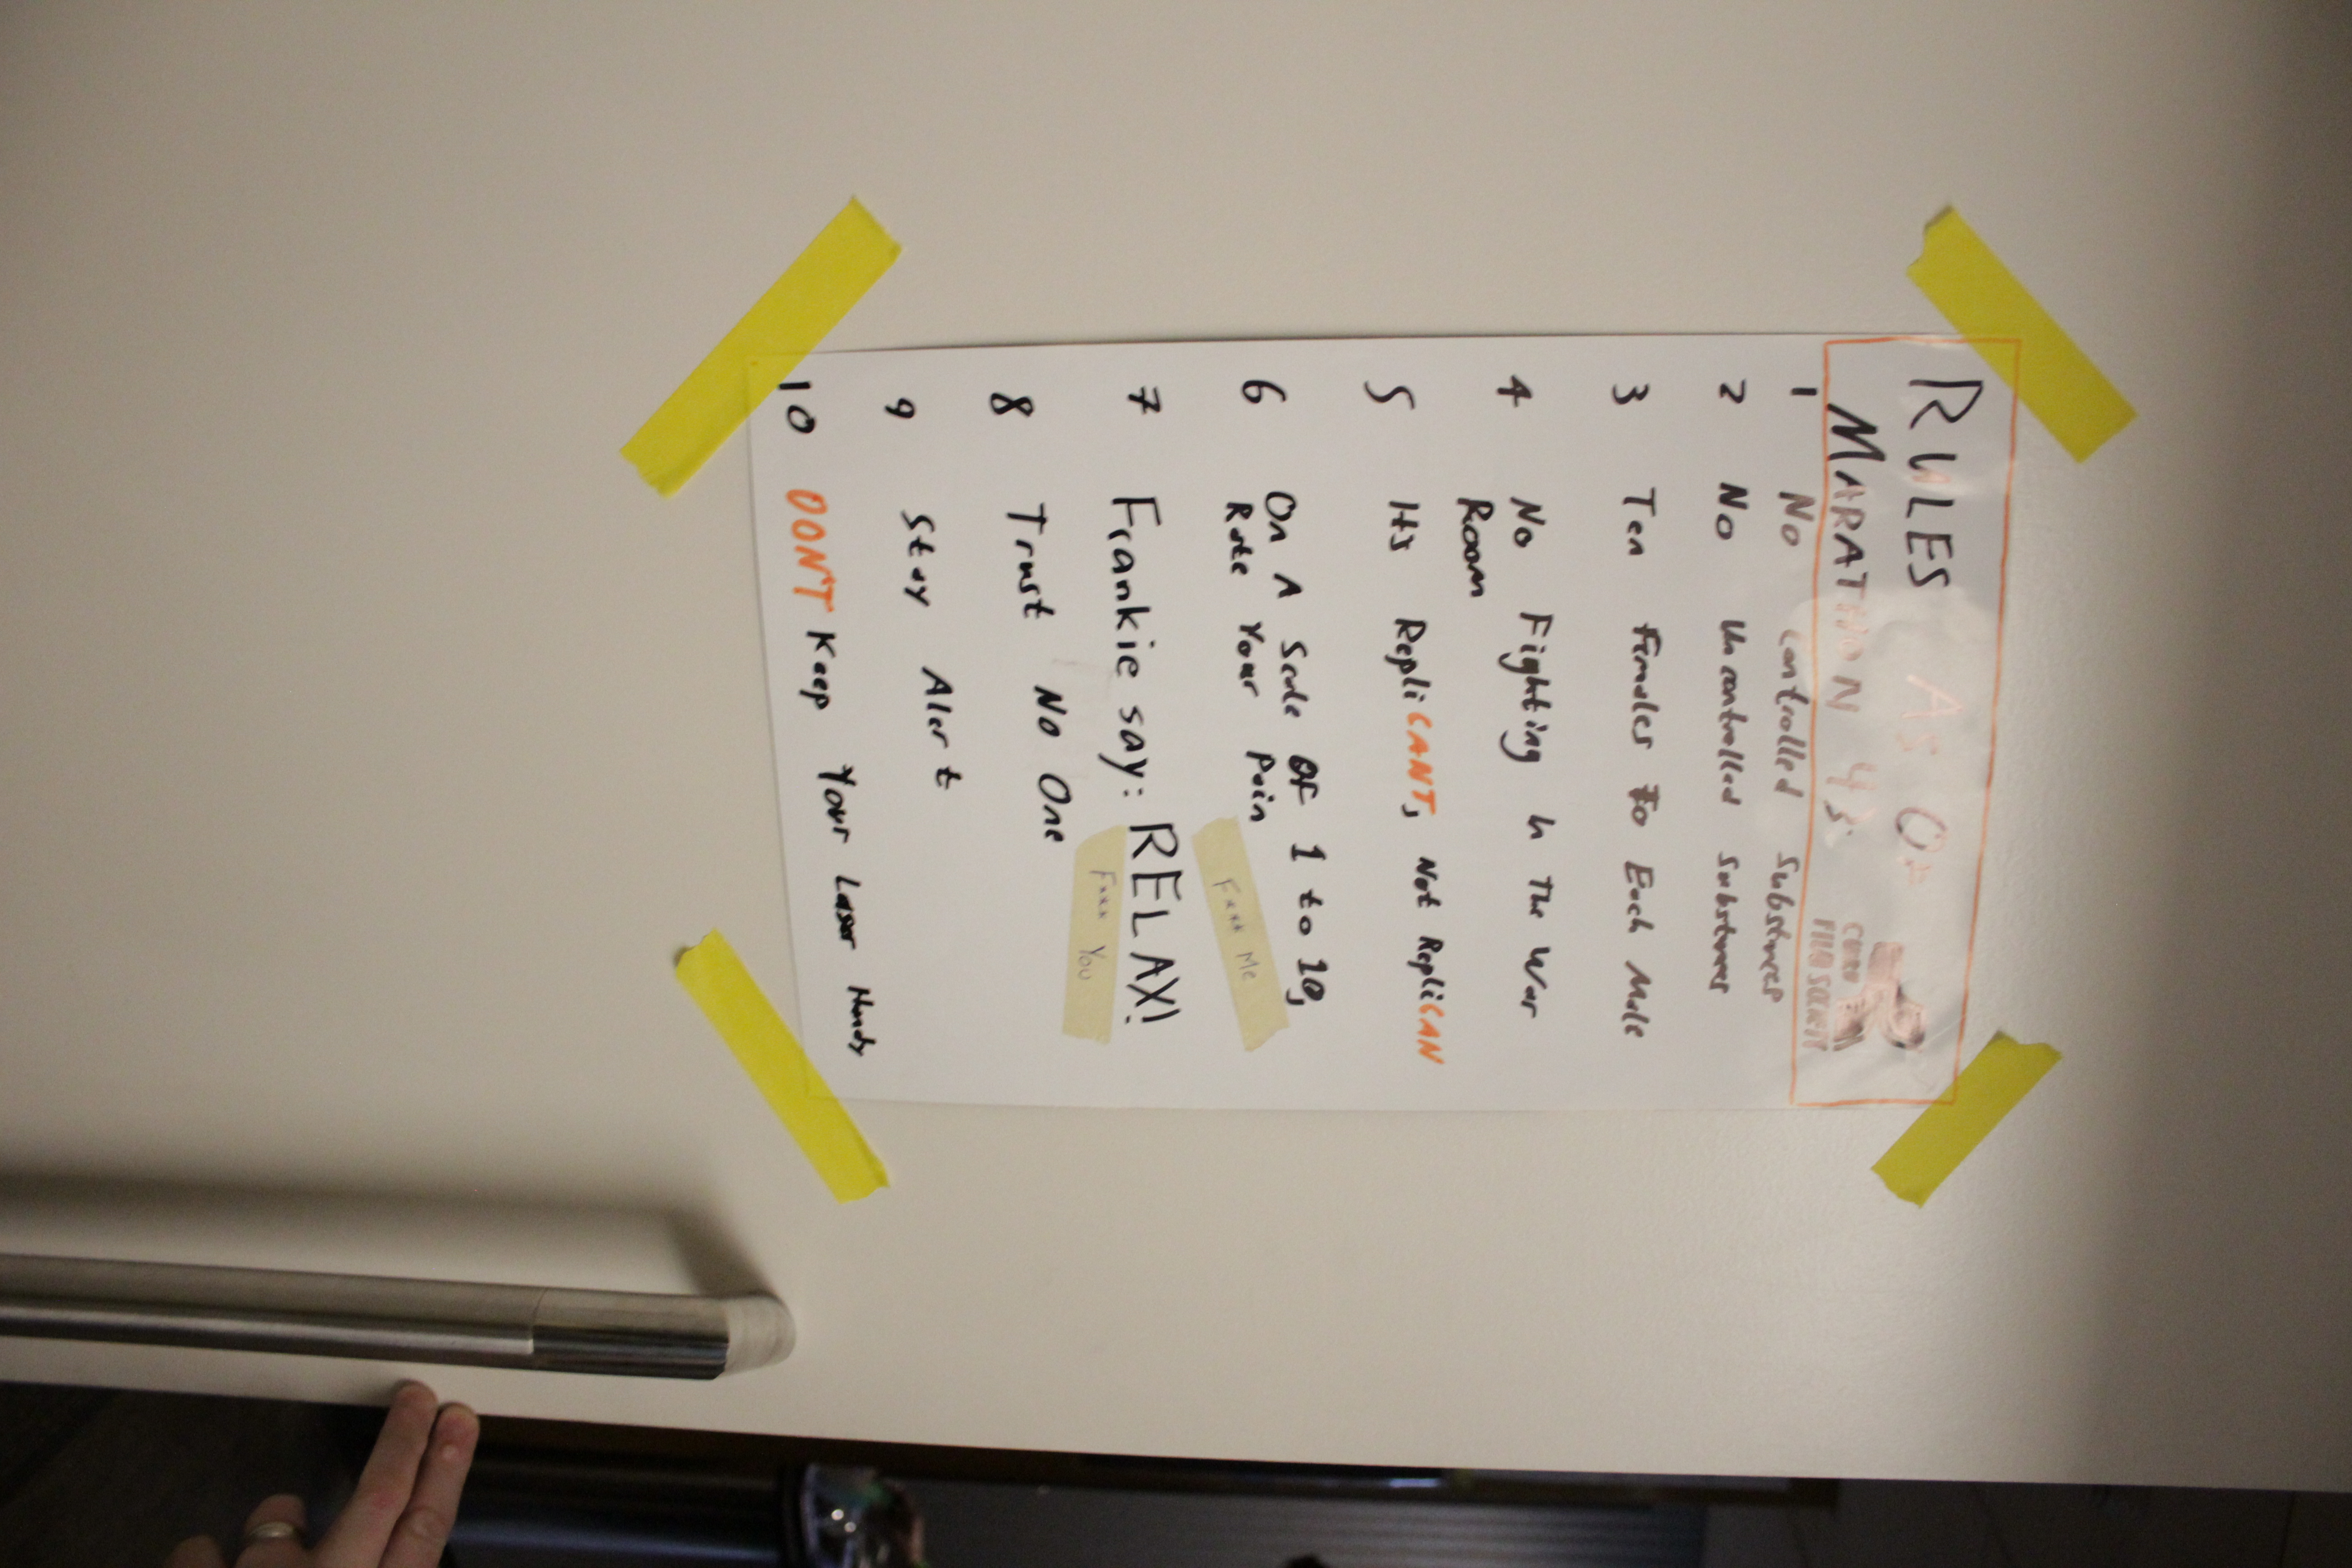 RULES AS OF
MARATHON 43:
1 No Controlled Substances
2 No Uncontrolled Substances
3 Ten Females To Each Male
4 No Fighting In The War
Room
5 It's RepliCANT, Not RepliCAN
6 On A Scale Of 1 to 10,
Rate Your Pain
F*** Me
7 Frankie say: RELAX!
F*** You
8 Trust No One
9 Stay Alert
10 DON'T Keep Your Laser Handy